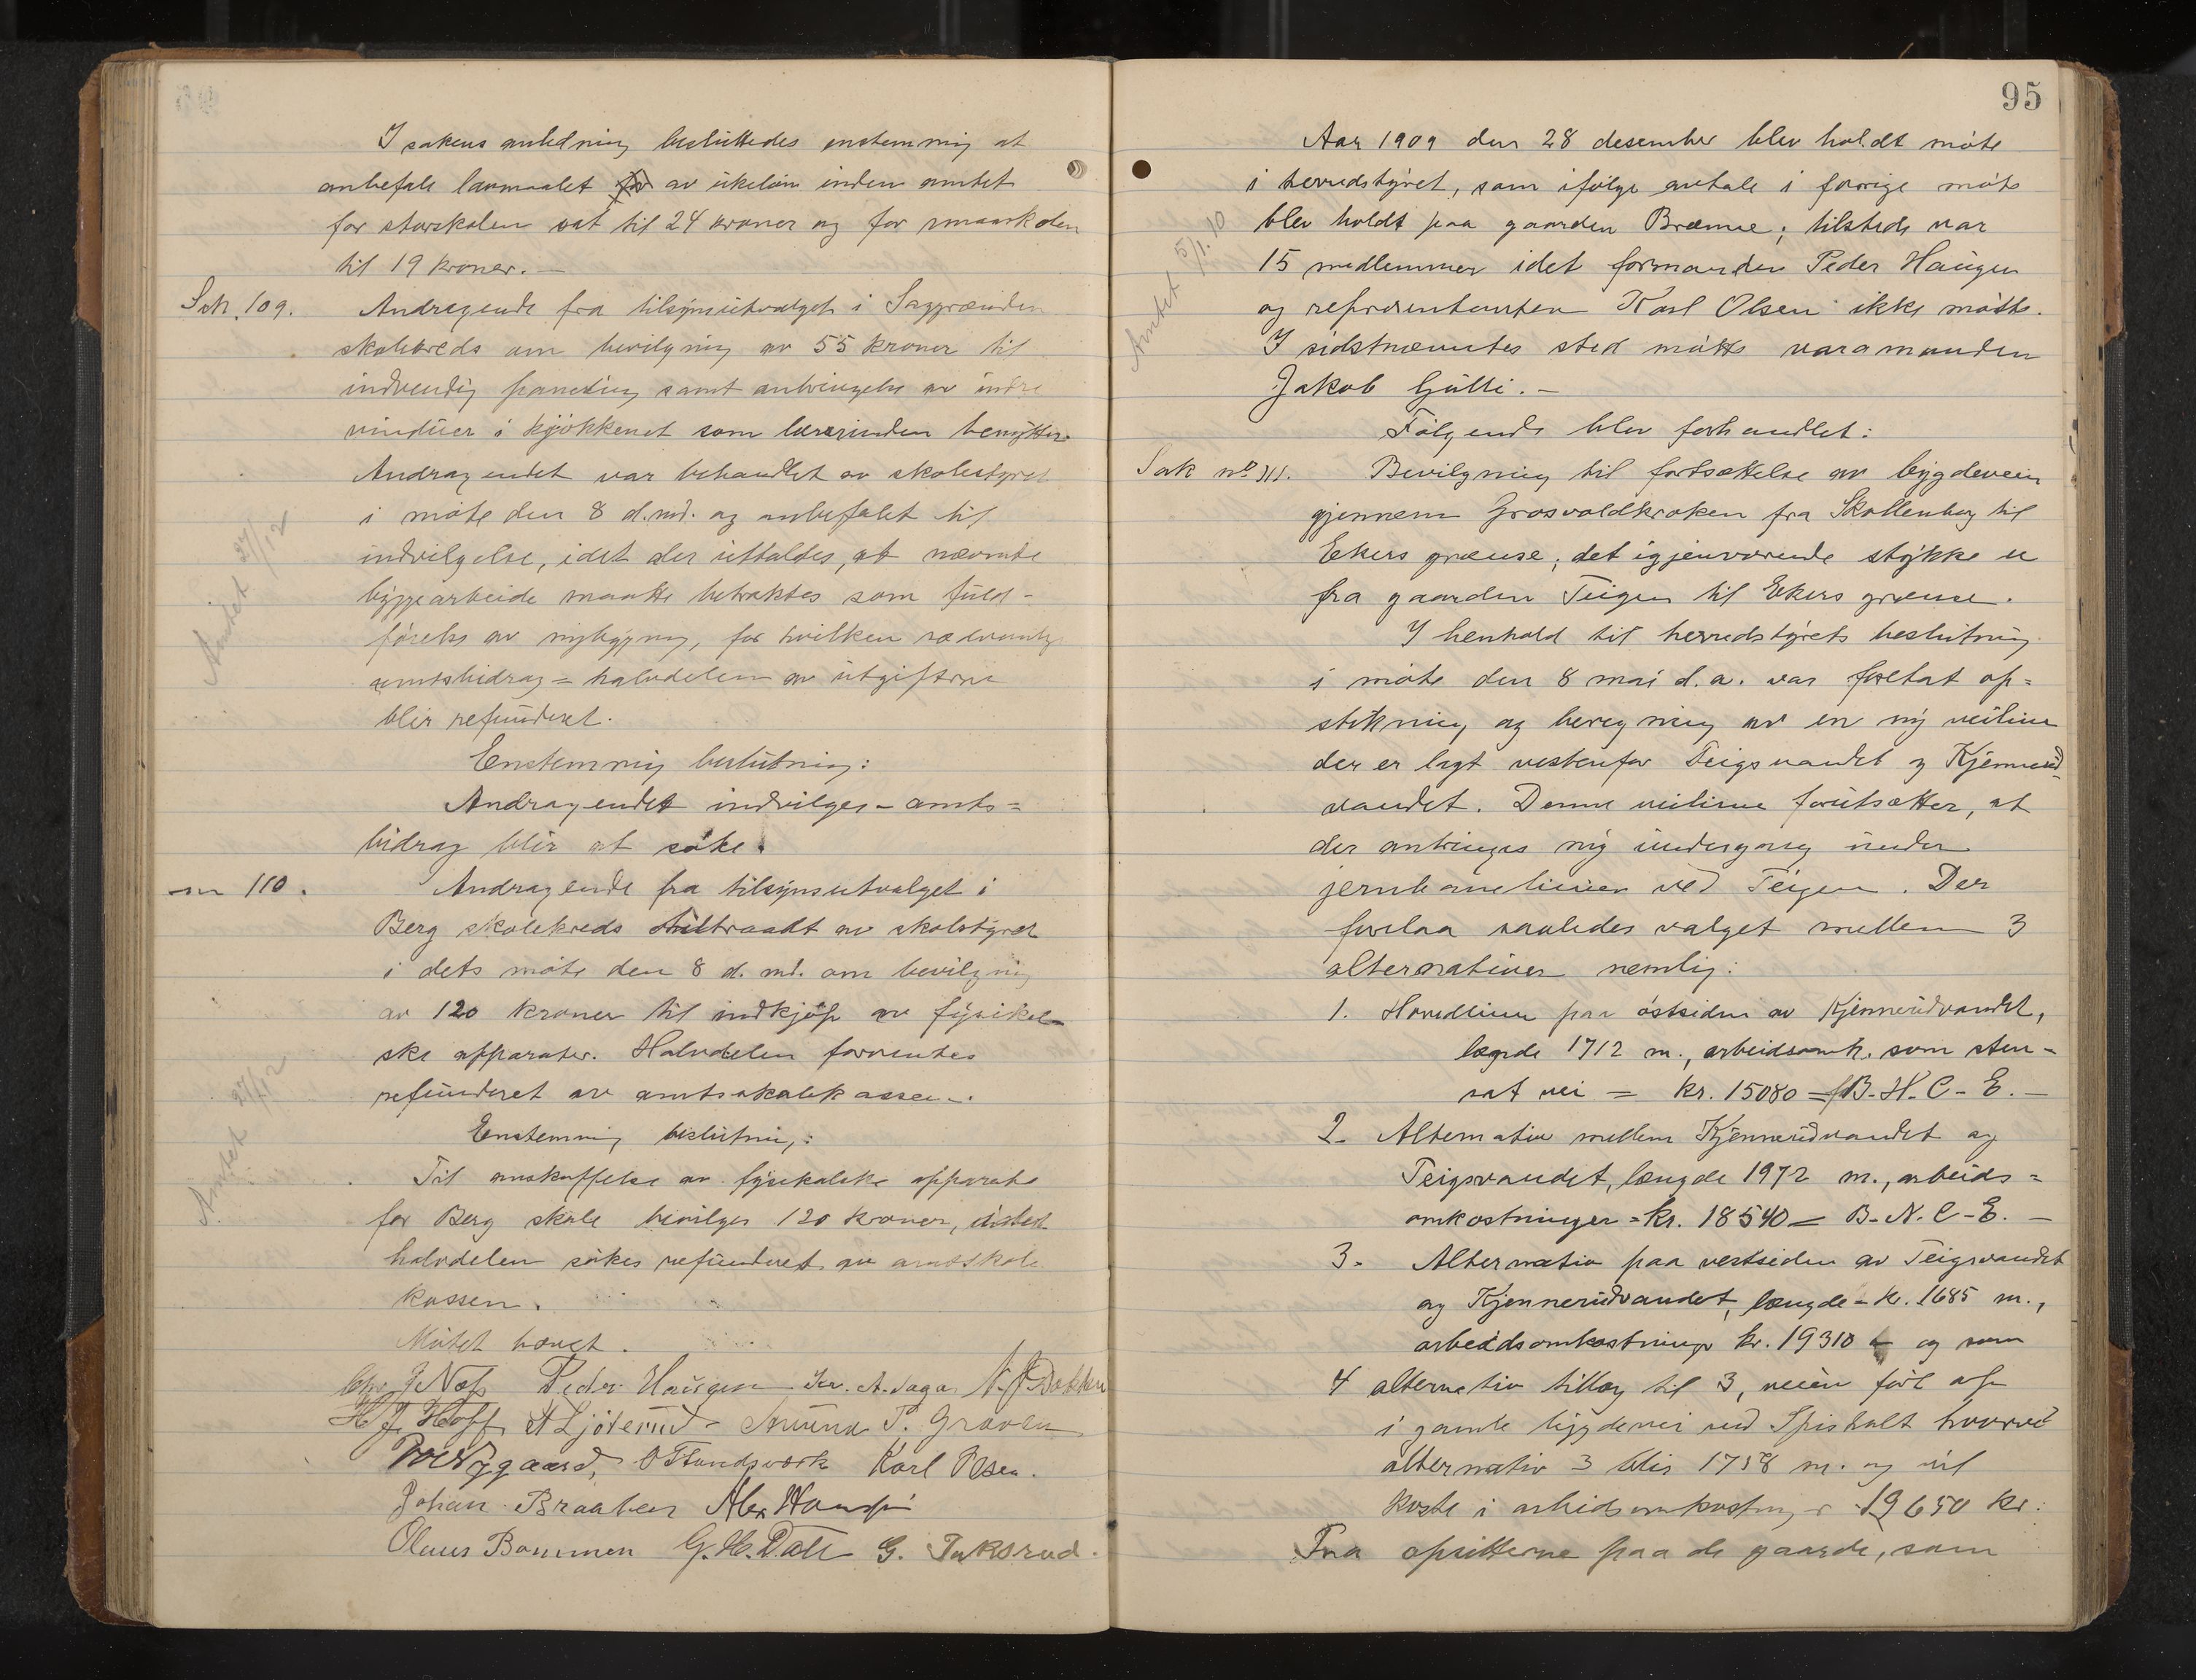 I sakens anledning besluttedes enstemmig at
anbefale lavmaalet av ukeløn inden amtet
for storskolen sat til 24 kroner og for smaaskolen
til 19 kroner. —
Sak 109. Andragende fra tilsynsutvalget i Saggrænden
skolekreds om bevilgning av 55 kroner til
indvendig paneling samt anbringelse av indre
vinduer i kjøkkenet som lærerinden benytter.
Andragendet var behandlet av skolestyret
i møte den 8 d.md. og anbefalet til
indvilgelse, idet der uttaldes, at nævnte
byggearbeide maatte betraktes som fuld-
førelse av nybygning, for hvilken sedvanlig
amtsbidrag = halvdelen av utgiftene
blir refunderet.
Andet 27/12
Enstemmig beslutning:
Andragendet indvilges - amts=
bidrag blir at søke.
110. Andragende fra tilsynsutvalget i
Berg skolekreds tiltraadt av skolestyret
i dets møte den 8 d. md. om bevilgning
av 120 kroner til indkjøp av fysikal-
ske apparater. Halvdelen forventes
refunderet av amtsskolekassen.
Andet 27/12
Enstemmig beslutning:
Til anskaffelse av fysikalske apparater
for Berg skole bevilges 120 kroner,
halvdelen søkes refunderet av amtsskole
kassen.
Møtet hævet.
Chr. J Næss Peder Haugen Kr. A. Saga
H J Hoff A Ljøterud - Amund P. Graven
Nygaard, O Strandsværk Karl Olsen.
Johan Braaten Alex Hansen
Olaus Bommen G. H. Dall G. Juksrud.
95
Aar 1909 den 28 desember blev holdt møte
i herredstyret, som ifølge avtale i forrige møte
blev holdt paa gaarden Bræmne; tilstede var
15 medlemmer idet formanden Peder Haugen
og repræsentanten Karl Olsen ikke møtte.
I sidstnævntes sted møtte varamanden
Jakob Gulli. —
Andet 5/1. 10
Følgende blev forhandlet:
Sak no 111. Bevilgning til fortsættelse av bygdevein
gjennem Grosvoldkroken fra Skollenborg til
Ekers grænse; det igjenværende stykke er
fra gaarden Teigen til Ekers grænse.
I henhold til herredstyrets beslutning
i møte den 8 mai d.a. var foretat op=
stikning og beregning av en ny veilinie
der er lagt vestenfor Teigsvandet og Kjennerud-
vandet. Denne veilinie forutsætter, at
der anbringes ny undergang under
jernbanelinien ved Teigen. Der
forelaa saaledes valget mellem 3
alternativer nemlig:
1. Hovedlinie paa østsiden av Kjennerudvandet,
længde 1712 m., arbeidsomk. som sten-
sat vei = kr. 15080 = B-H-C-E. —
2. Alternativ mellem Kjennerudvandet og
Teigsvandet, længde 1972 m., arbeids=
omkostninger = kr. 18540 = B-N-C-E. —
3. Alternativ paa vestsiden av Teigsvandet
og Kjennerudvandet, længde - kr. 1685 m.,
arbeidsomkostninger kr. 19310 og som
4 alternativ tillæg til 3, veien ført op
i gamle bygdevei ved Spishalt hvorved
alternativ 3 blir 1738 m. og vil
koste i arbeidsomkostninger 19650 kr.
Fra opsitterne paa de gaarde, som